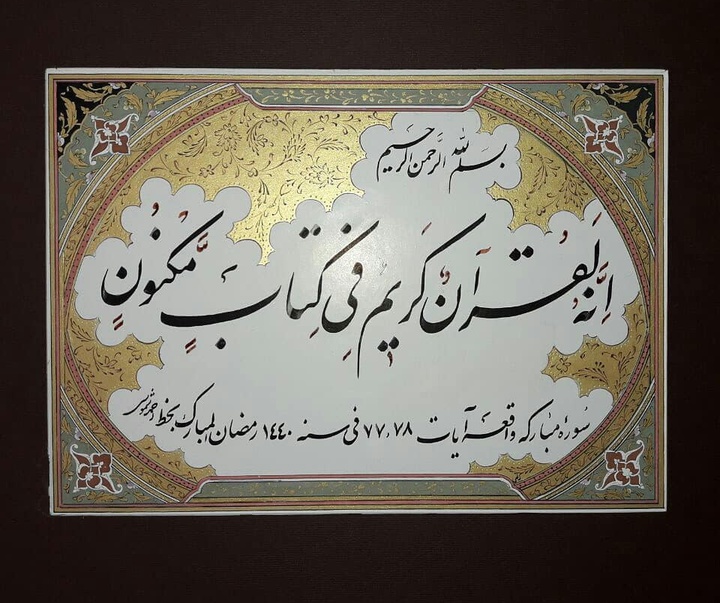 بسم الله الرحمن الرحيم
اِنَّهُ لَقُرآنٌ كَريمٌ فِي كِتابٍ مَّكنُونٍ
سورهٔ مبارکه واقعه آیات ۷۷،۷۸ فی سنه ۱۴۴۰ رمضان المبارک بخط